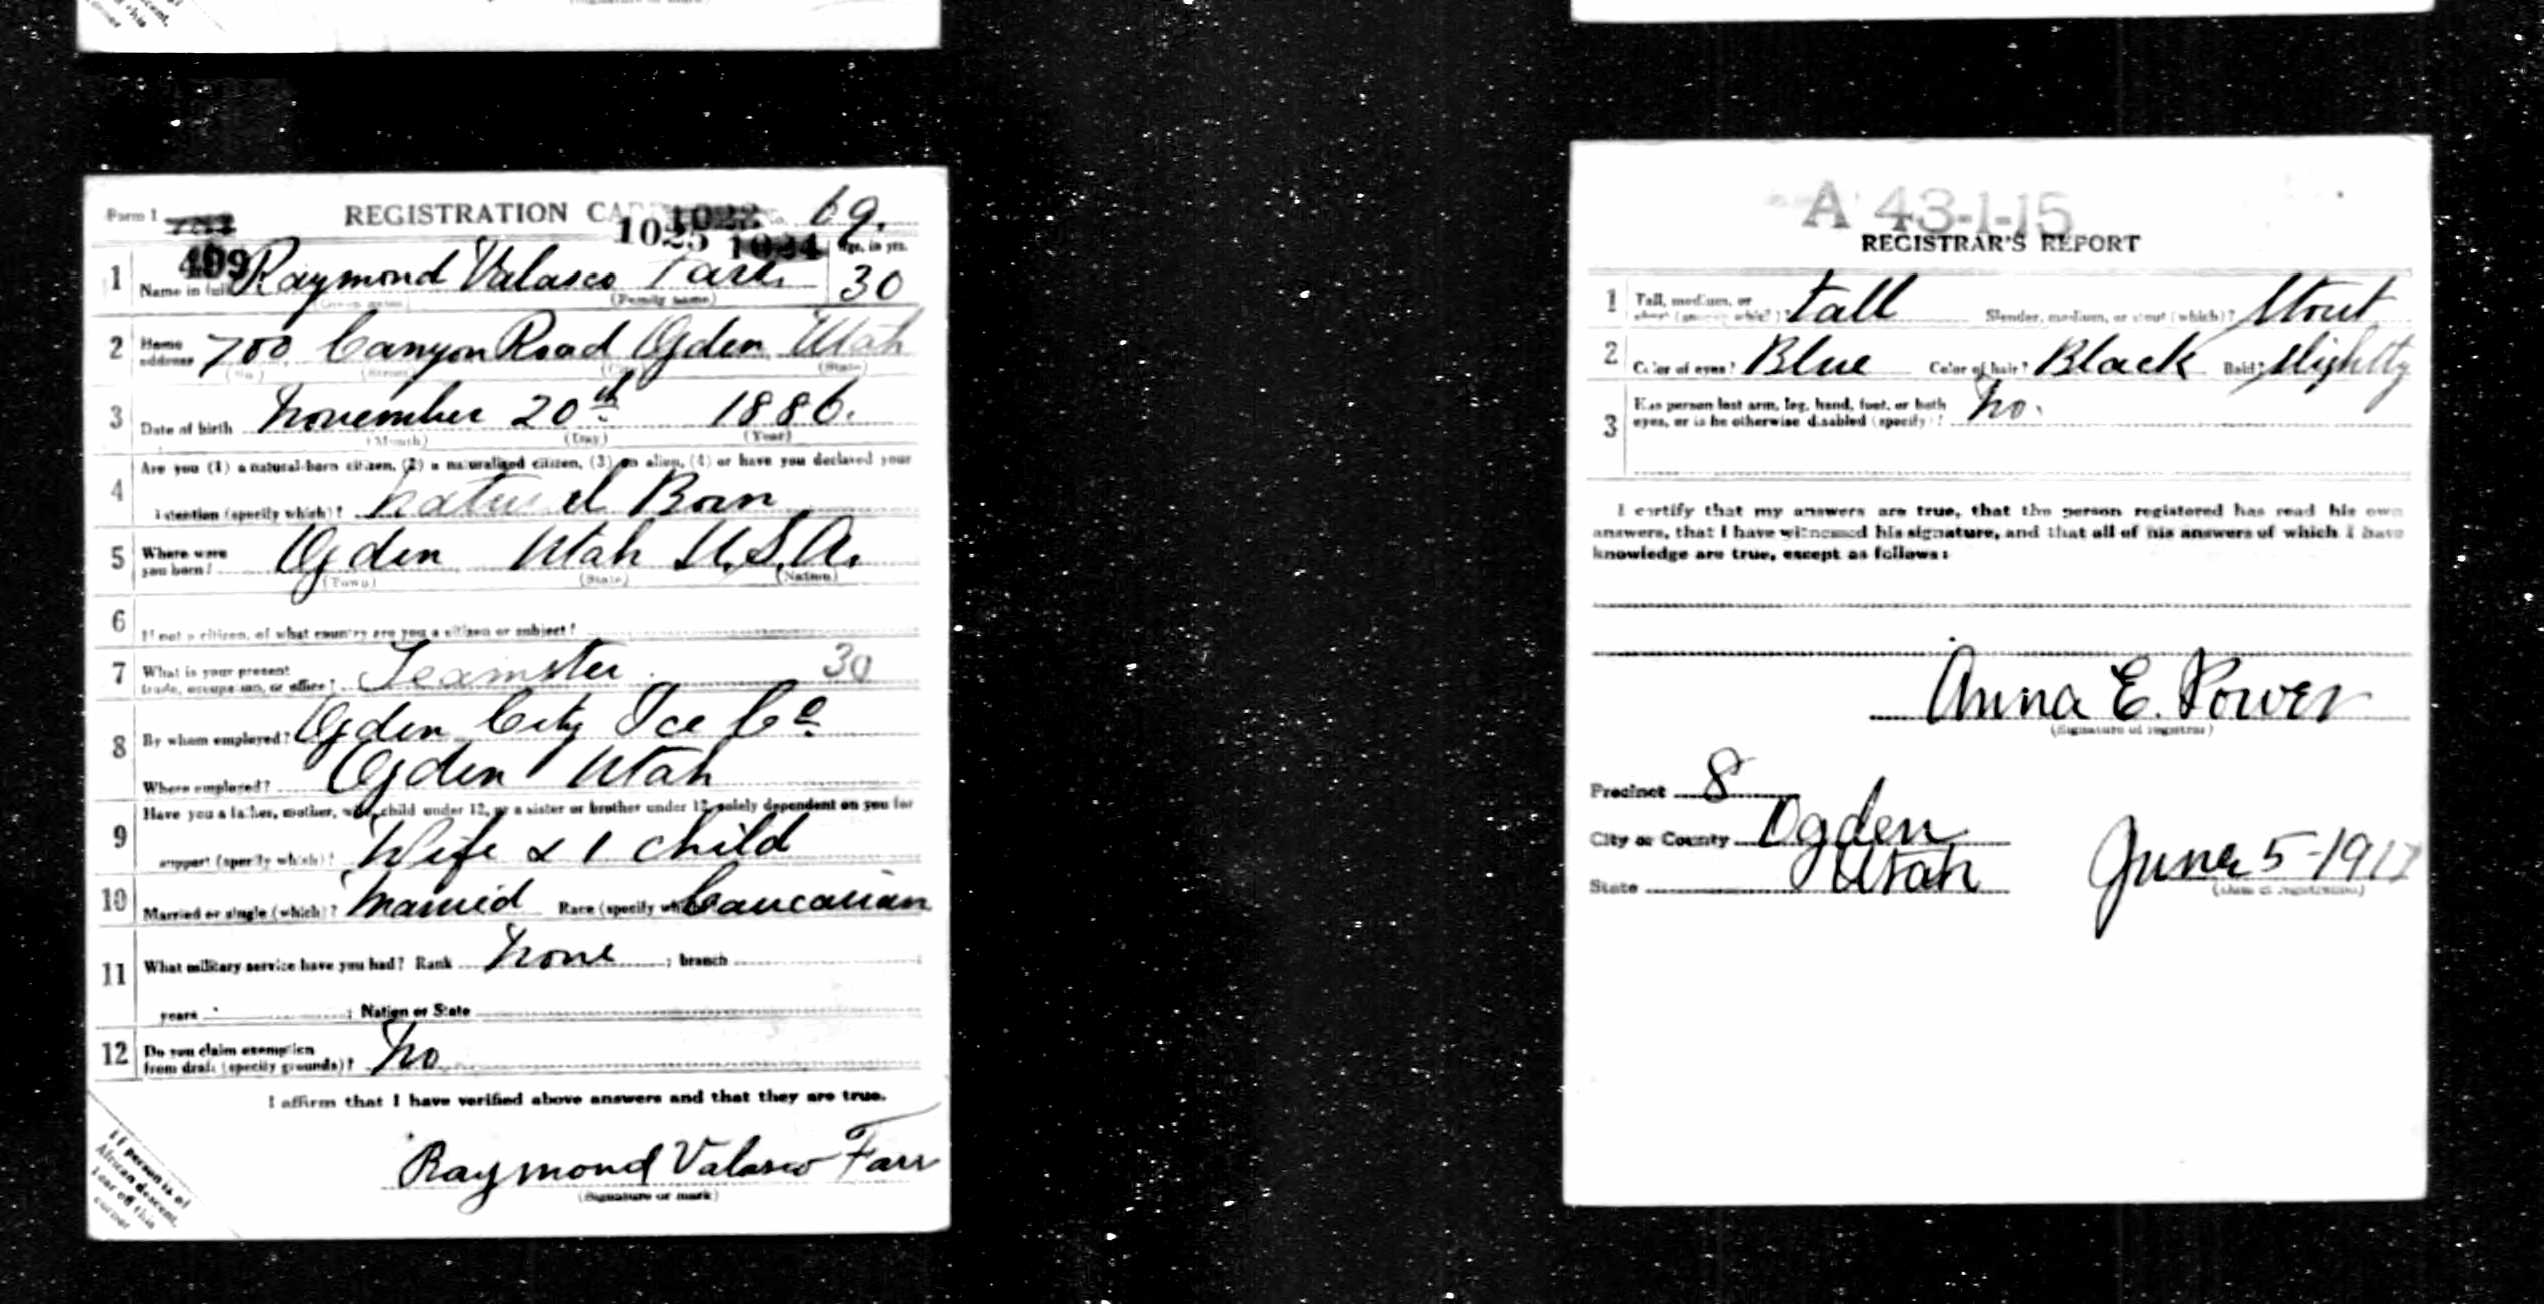 Form 1
REGISTRATION CARD
No. 69.
1025
409
1 Name in full Raymond Valasco Farr
(Given name) (Family name)
Age, in yrs. 30
2 Home address 700 Canyon Road Ogden Utah
(No.) (Street) (City) (State)
3 Date of birth November 20th 1886.
(Month) (Day) (Year)
4 Are you (1) a natural-born citizen, (2) a naturalized citizen, (3) an alien, (4) or have you declared your
intention (specify which)? Natural Born
5 Where were you born? Ogden Utah U.S.A.
(Town) (State) (Nation)
6 If not a citizen, of what country are you a citizen or subject?
7 What is your present
trade, occupation, or office? Teamster 30
8 By whom employed? Ogden City Ice Co
Where employed? Ogden Utah
9 Have you a father, mother, wife, child under 12, or a sister or brother under 12, solely dependent on you for
support (specify which)? Wife & 1 child
10 Married or single (which)? Married Race (specify which)? Caucasian
11 What military service have you had? Rank None ; branch
years ; Nation or State
12 Do you claim exemption
from draft (specify grounds)? No
I affirm that I have verified above answers and that they are true.
Raymond Valasco Farr
(Signature or mark)
If person is of
African descent,
tear off this
corner
A 43-1-15
REGISTRAR'S REPORT
1 Tall, medium, or
short (specify which)? Tall Slender, medium, or stout (which)? Stout
2 Color of eyes? Blue Color of hair? Black Bald? Slightly
3 Has person lost arm, leg, hand, foot, or both
eyes, or is he otherwise disabled (specify)? No.
I certify that my answers are true, that the person registered has read his own
answers, that I have witnessed his signature, and that all of his answers of which I have
knowledge are true, except as follows:
Anna E. Power
(Signature of registrar)
Precinct 8
City or County Ogden
State Utah
June 5-1917
(Date of registration)